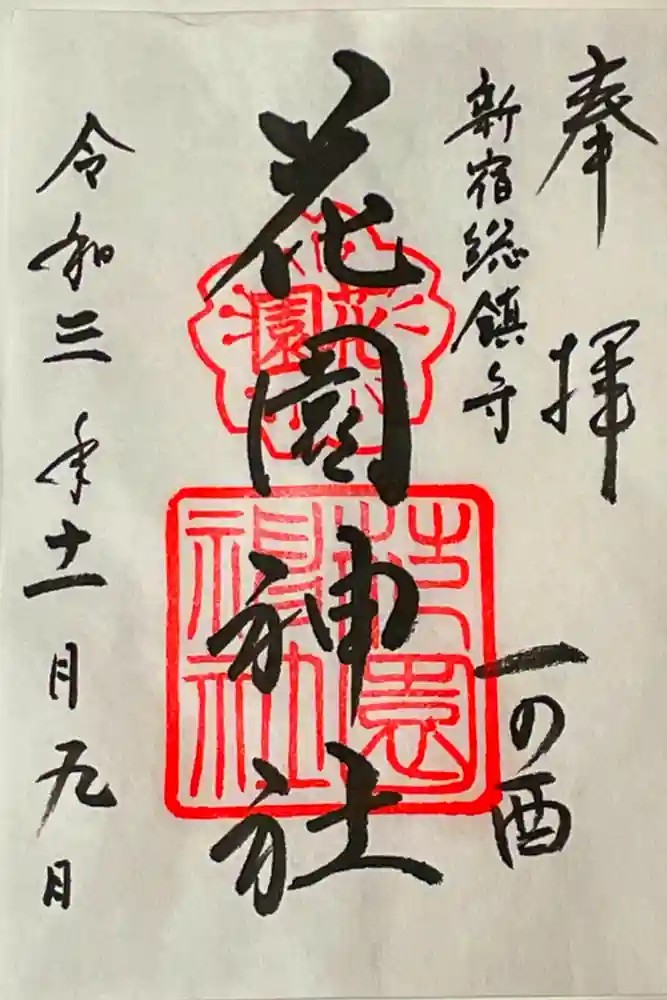 奉拝
新宿総鎮守
一の酉
花園神社
花園
花園神社
令和三年十一月九日